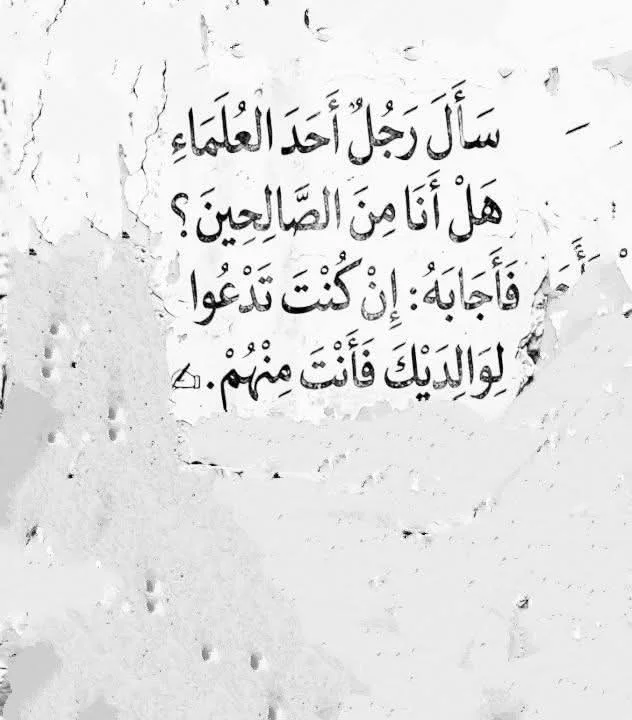 سَأَلَ رَجُلٌ أَحَدَ العُلَمَاءِ
هَلْ أَنَا مِنَ الصَّالِحِينَ ؟
فَأَجَابَهُ: إِنْ كُنْتَ تَدْعُوا
لِوَالِدَيْكَ فَأَنْتَ مِنْهُمْ.✍